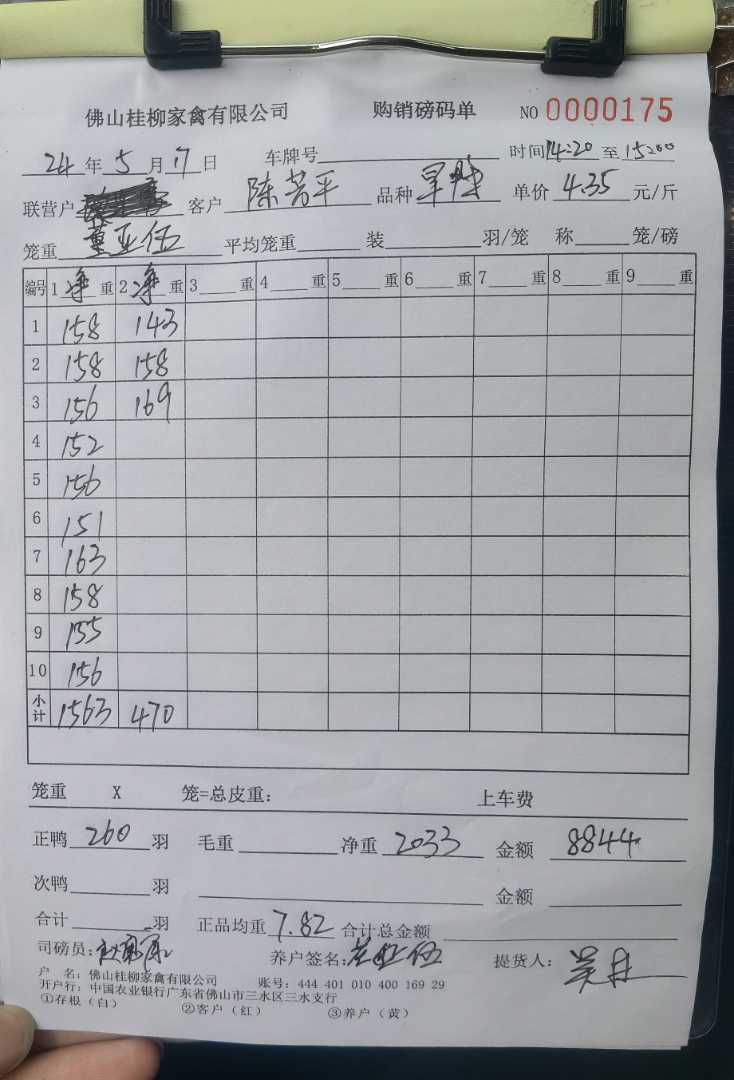 佛山桂柳家禽有限公司 购销磅码单 NO 0000175
24 年 5 月 17 日 车牌号 时间 14:20 至 15:00
联营户 客户 陈芳平 品种 单价 4.35 元/斤
笼重 董亚伍 平均笼重 装 羽/笼 称 笼/磅
编号 1 净 重 2 净 重 3 重 4 重 5 重 6 重 7 重 8 重 9 重
1 158 143
2 158 158
3 156 169
4 152
5 156
6 151
7 163
8 158
9 155
10 156
小计 1563 470
笼重 X 笼=总皮重: 上车费
正鸭 260 羽 毛重 净重 2033 金额 8844
次鸭 羽 金额
合计 羽 正品均重 7.82 合计总金额
司磅员: 养户签名: 董亚伍 提货人:
户 名: 佛山桂柳家禽有限公司 账号: 444 401 010 400 169 29
开户行: 中国农业银行广东省佛山市三水区三水支行
①存根(白) ②客户(红) ③养户(黄)